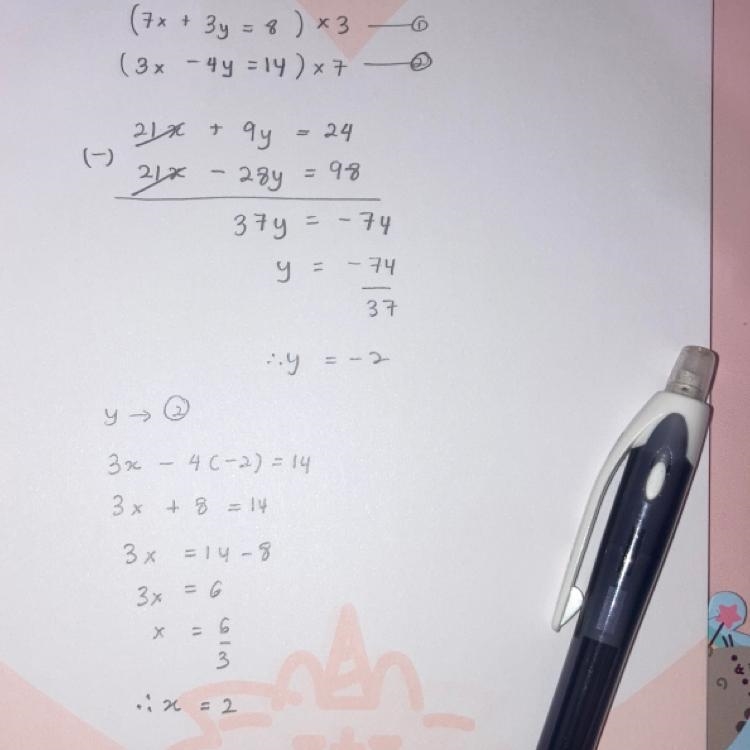 (7x + 3y = 8) × 3 — ①
(3x - 4y = 14) × 7 — ②
21x + 9y = 24
(-)
21x - 28y = 98
37y = -74
y = -74/37
∴ y = -2
y → ②
3x - 4(-2) = 14
3x + 8 = 14
3x = 14 - 8
3x = 6
x = 6/3
∴ x = 2